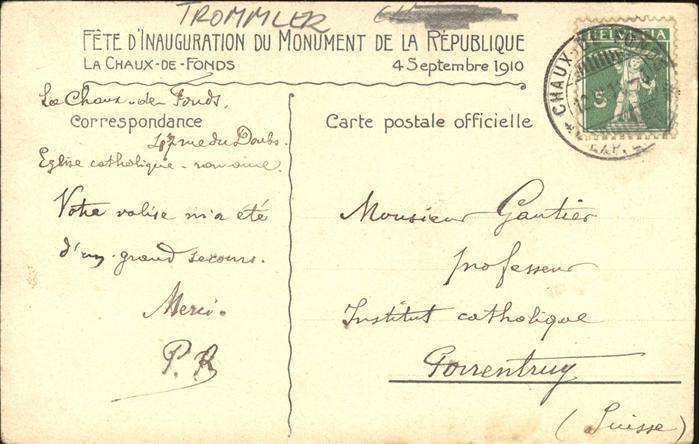 TROMMLER
FÊTE D'INAUGURATION DU MONUMENT DE LA RÉPUBLIQUE
LA CHAUX-DE-FONDS 4 Septembre 1910
La Chaux-de-Fonds.
Correspondance
rue du Doubs.
Eglise catholique-romaine
Votre valise m'a été
d'un grand secours.
Merci.
P. R
Carte postale officielle
HELVETIA
5
CHAUX-DE-FONDS
Monsieur Gautier
professeur
Institut catholique
Porrentruy
(Suisse)